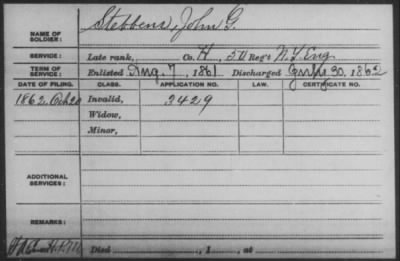 NAME OF SOLDIER: Stebbens, John G.
SERVICE: Late rank, Co. H, 50 Reg't N.Y. Eng
TERM OF SERVICE: Enlisted Aug. 7, 1861 Discharged July 30, 1862
DATE OF FILING. CLASS. APPLICATION NO. LAW. CERTIFICATE NO.
1862, Oct 20 Invalid, 3429
Widow,
Minor,
ADDITIONAL SERVICES:
REMARKS:
Died , 1 , at